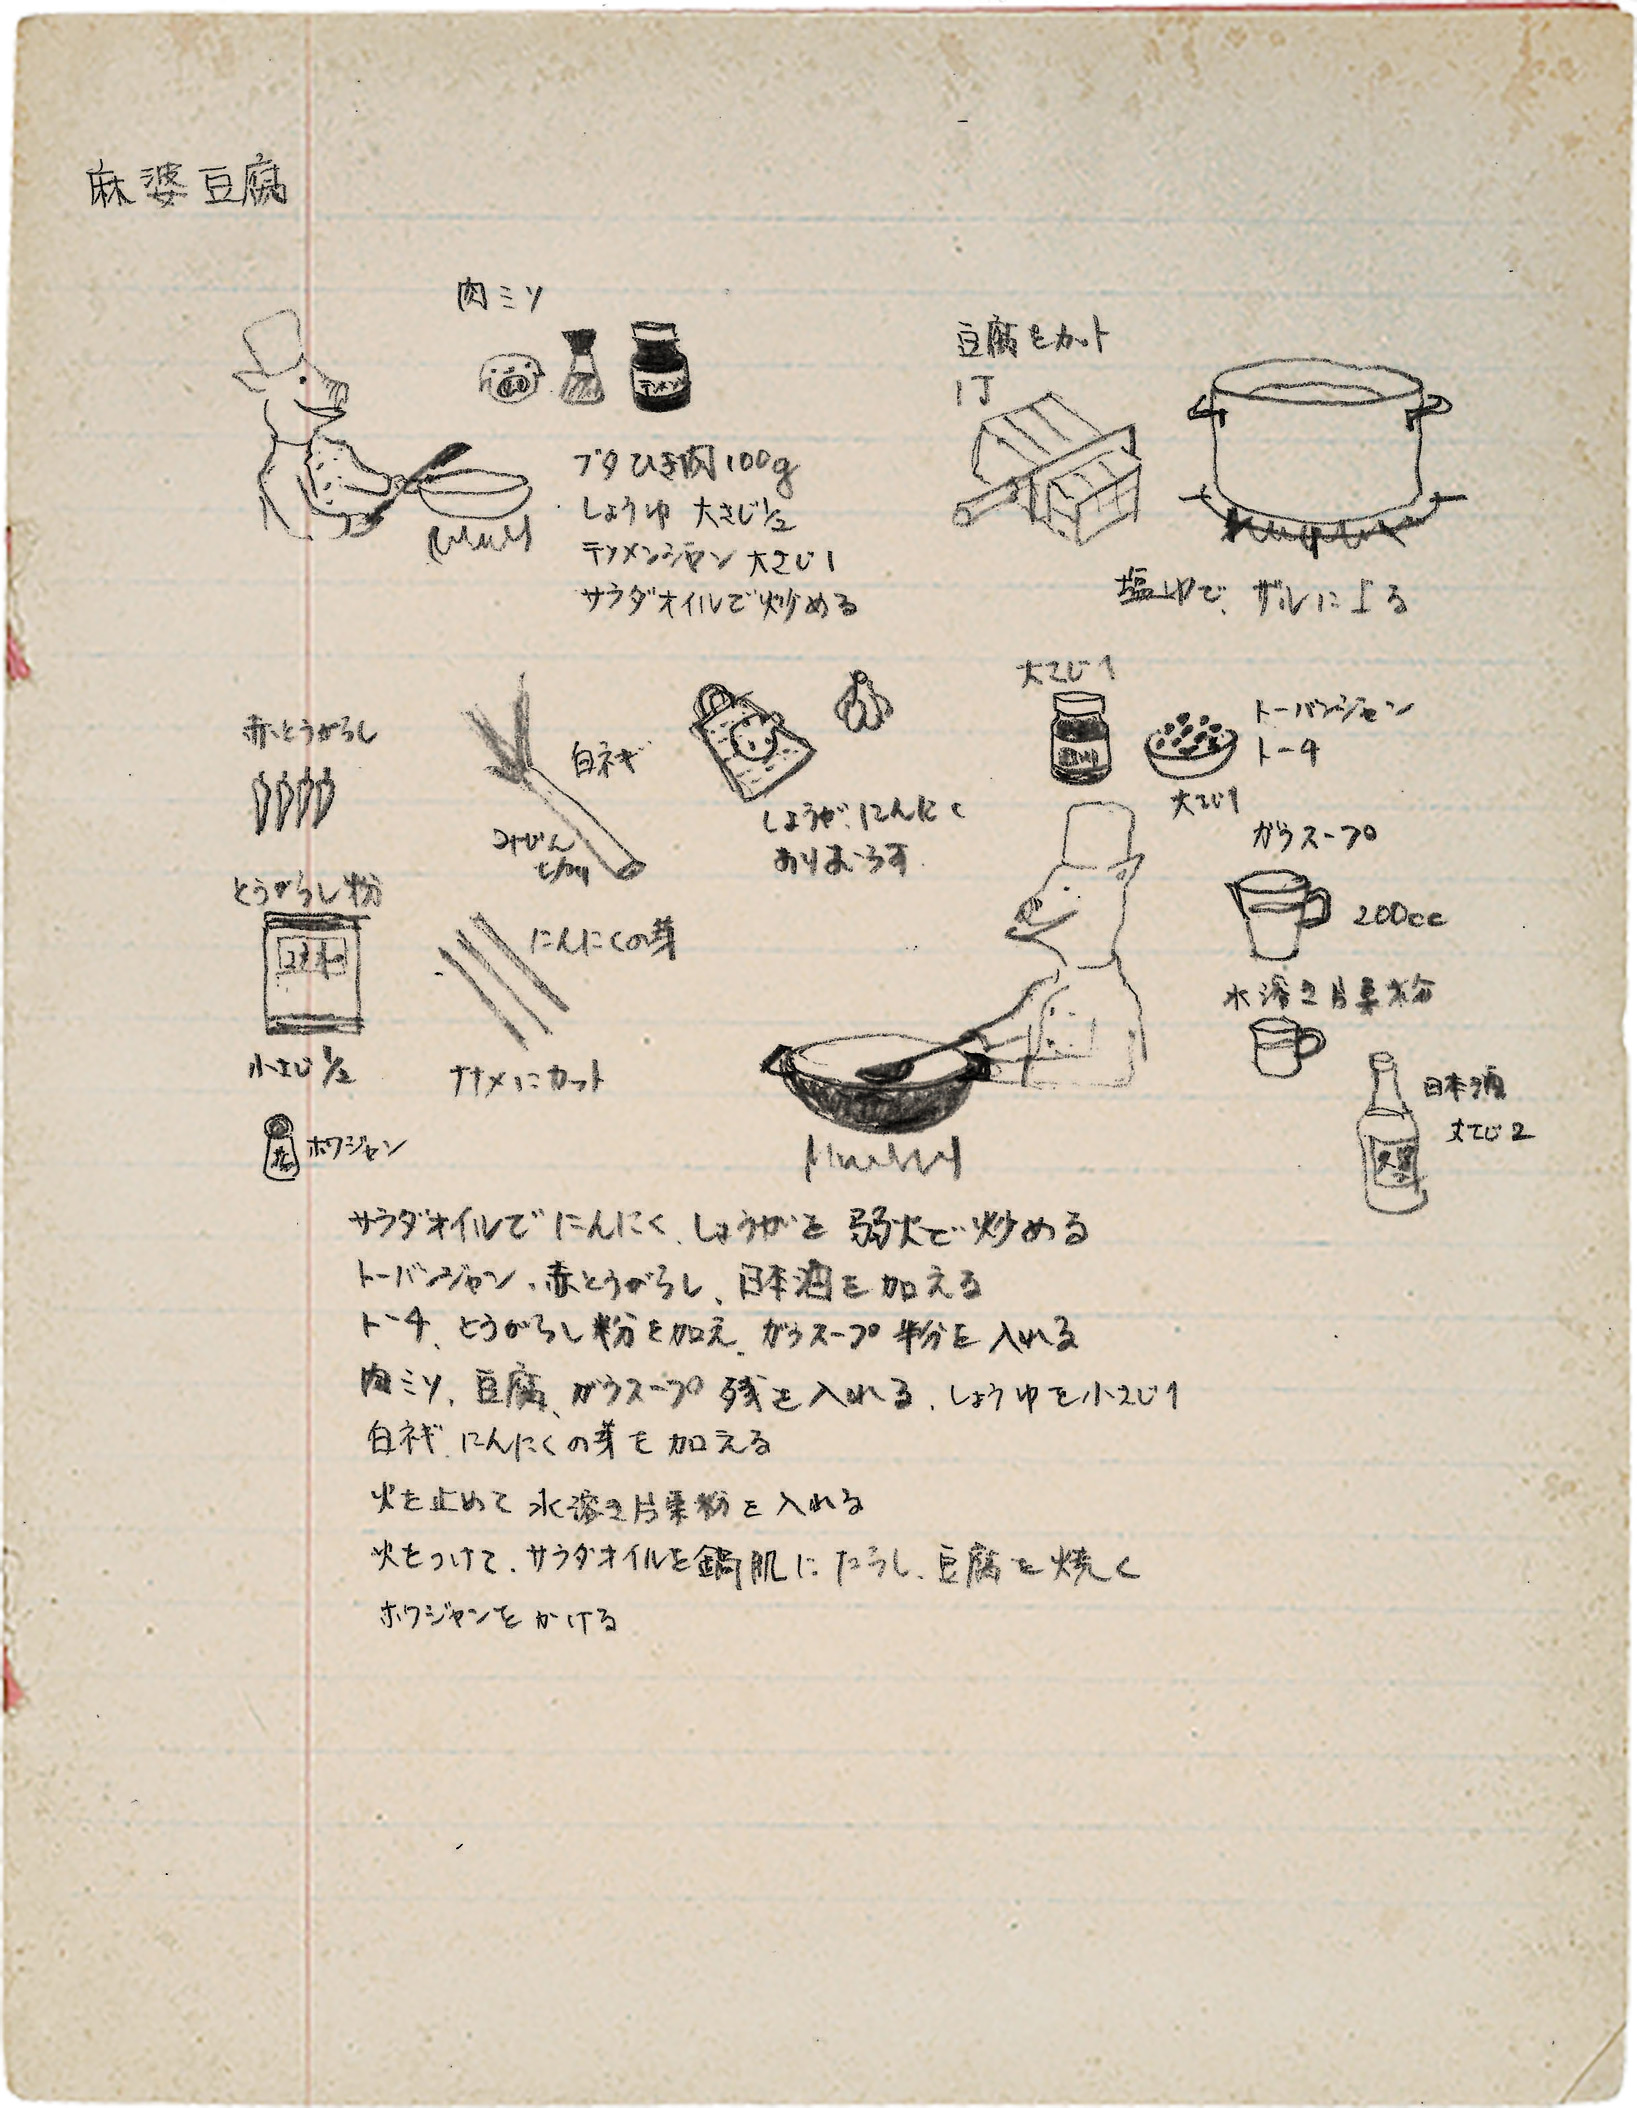 麻婆豆腐
肉ミソ
テンメン
ブタひき肉100g
しょうゆ 大さじ1/2
テンメンジャン 大さじ1
サラダオイルで炒める
豆腐をカット
1丁
塩ゆで、ザルに上る
赤とうがらし
とうがらし粉
小さじ1/2
ホワジャン
白ネギ
みじん
にんにくの芽
ナナメにカット
しょうが、にんにく
大さじ1
トーバンジャン
トーチ
大さじ1
ガラスープ
200cc
水溶き片栗粉
日本酒
大さじ2
サラダオイルでにんにく、しょうがを弱火で炒める
トーバンジャン、赤とうがらし、日本酒を加える
トーチ、とうがらし粉を加え、ガラスープ半分を入れる
肉ミソ、豆腐、ガラスープ残を入れる、しょうゆを小さじ1
白ネギ、にんにくの芽を加える
火を止めて水溶き片栗粉を入れる
火をつけて、サラダオイルを鍋肌にたらし、豆腐を焼く
ホワジャンをかける